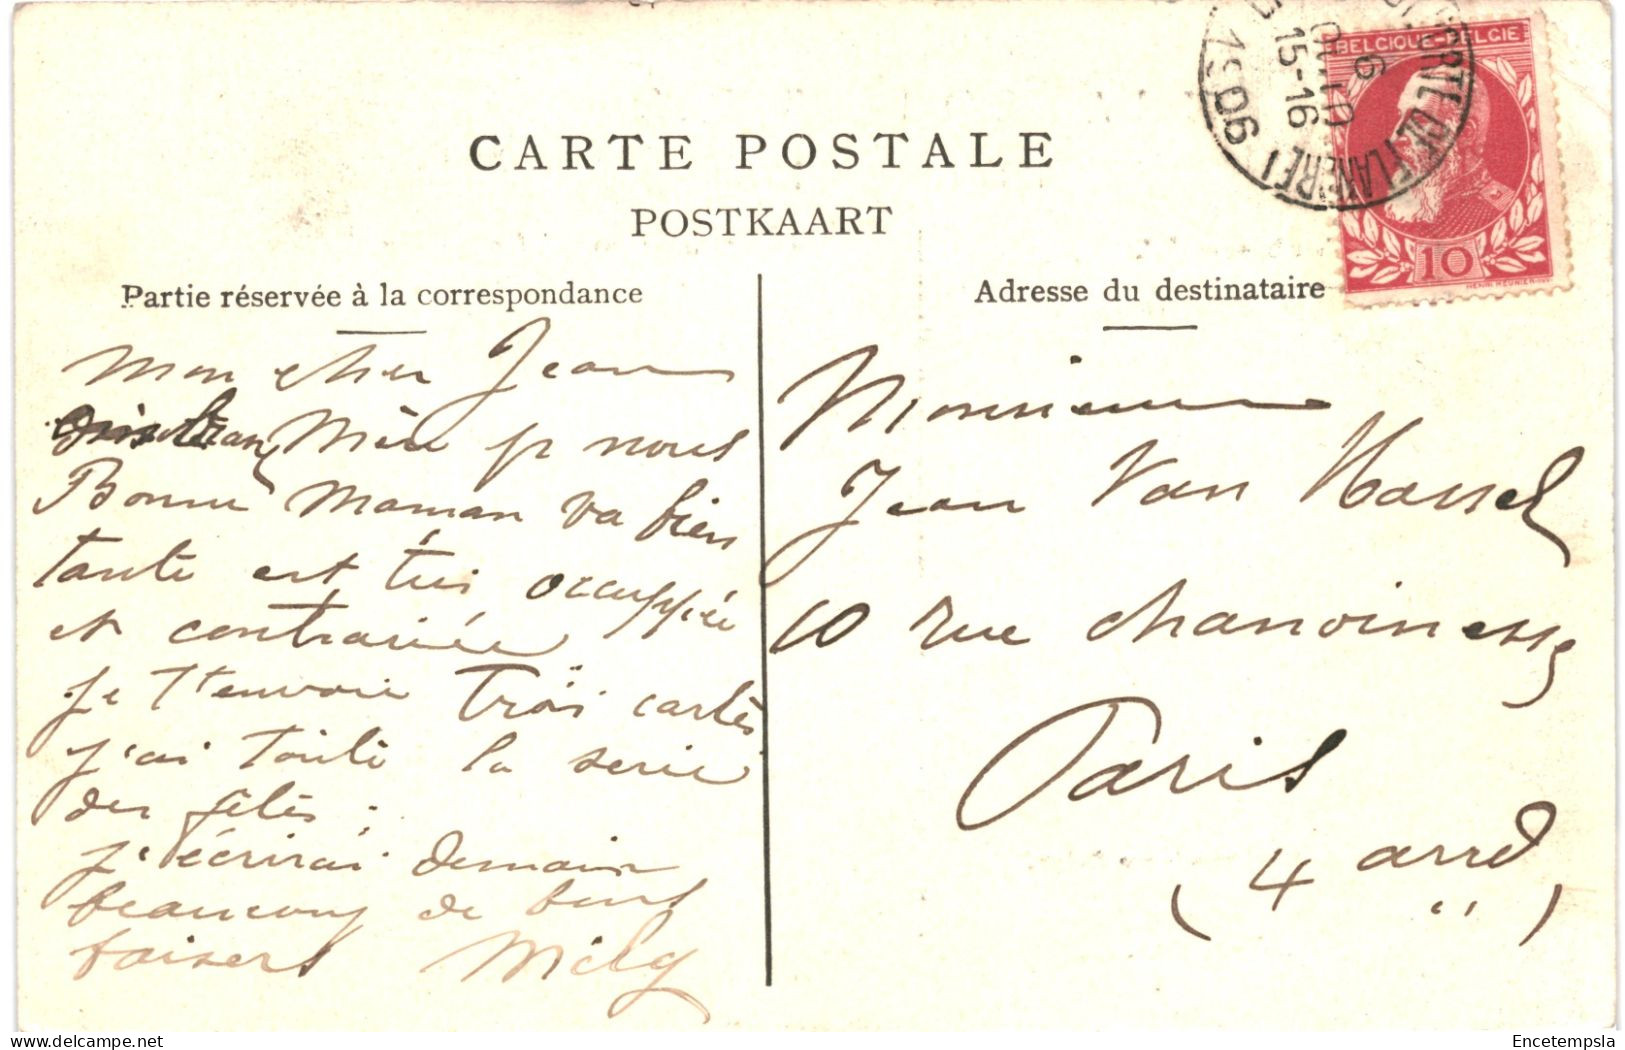 CARTE POSTALE
POSTKAART
Partie réservée à la correspondance
Adresse du destinataire
BELGIQUE-BELGIE
10
HENRI MEUNIER
PORTE DE FLANDRE
6
15-16
1906
Mon cher Jean
Mère nous
Bonne Maman va bien
tante est très occuppée
et contrariée
je t'envoie trois cartes
j'ai toute la serie
des fêtes.
j'écrirai demain
beaucoup de bons
baisers Mély
Monsieur
Jean Van Hassel
10 rue chanoinesse
Paris
(4 arrd)
Encetempsla